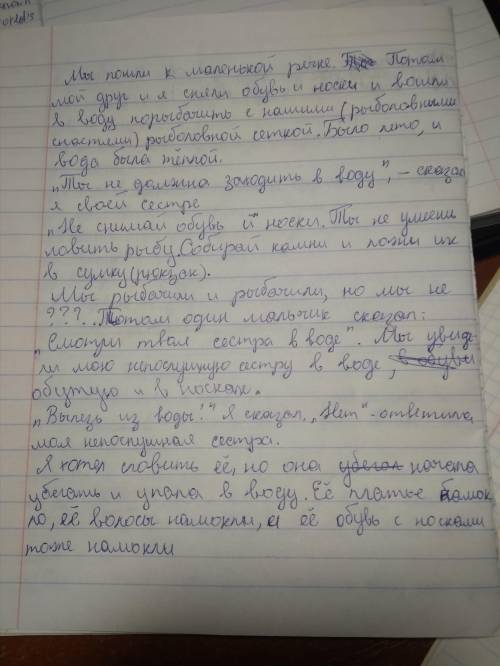 Мы пошли к маленькой речке. Потом
мой друг и я сняли обувь и носки и вошли
в воду порыбачить с нашими (рыболовными
снастями) рыболовной сеткой. Было лето, и
вода была тёплой.
„Ты не должна заходить в воду", - сказал
я своей сестре
„Не снимай обувь и носки. Ты не умеешь
ловить рыбу. Собирай камни и ложи их
в сумку (рюкзак).
Мы рыбачили и рыбачили, но мы не
???. Потом один мальчик сказал:
„Смотри твоя сестра в воде". Мы увиде-
ли мою непослушную сестру в воде, в обуви
обутую и в носках.
„Вылезь из воды!" Я сказал. „Нет" - ответила
моя непослушная сестра.
Я хотел словить её, но она убегал начала
убегать и упала в воду. Её платье намок
ло, её волосы намокли, и её обувь с носками
тоже намокли